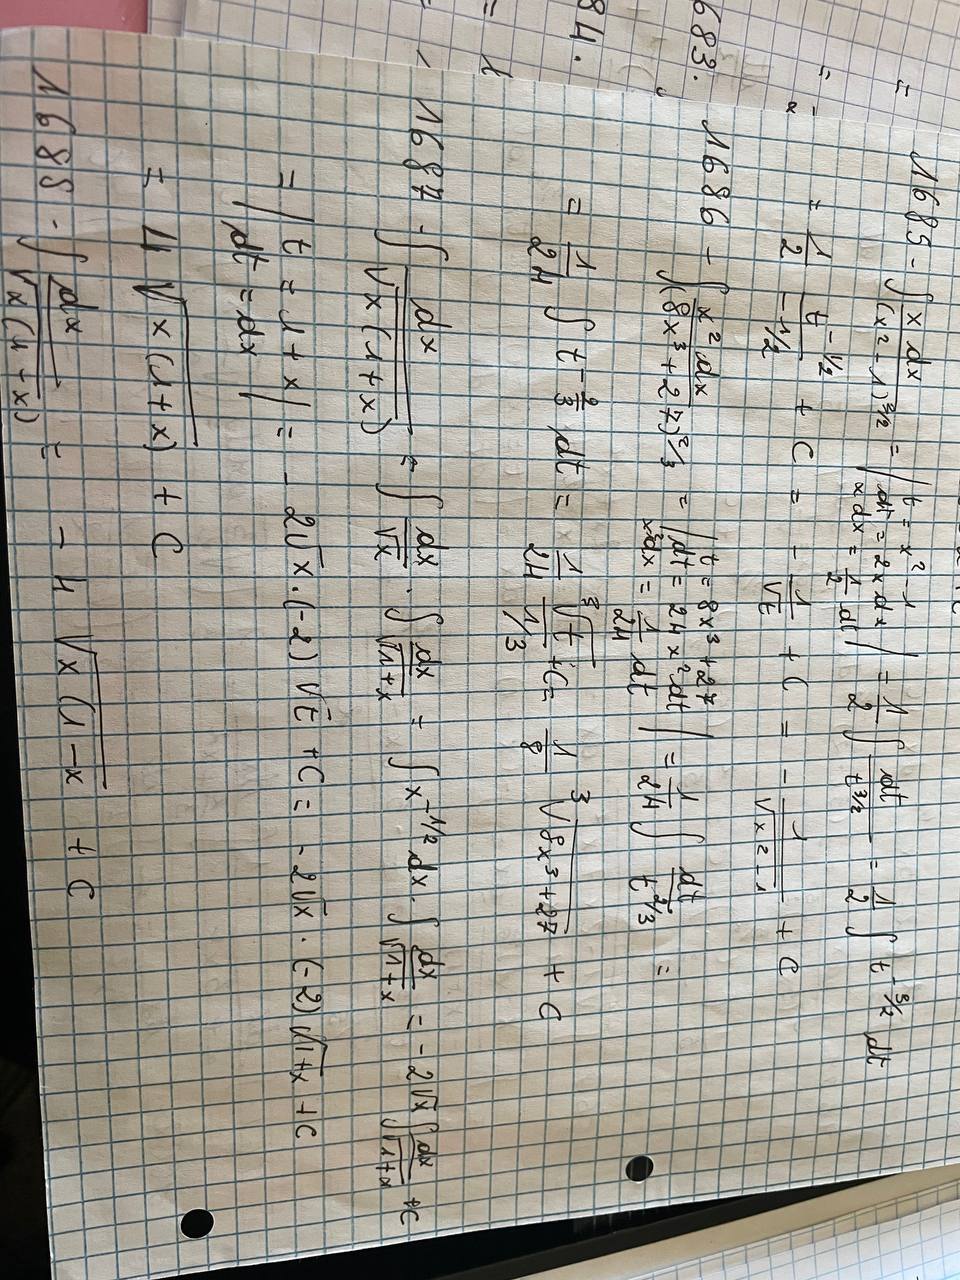 1685 - ∫ x dx / (x² - 1)^3/2 = | t = x² - 1 ; dt = 2x dx ; x dx = 1/2 dt | = 1/2 ∫ dt / t^3/2 = 1/2 ∫ t^-3/2 dt
= 1/2 t^-1/2 / -1/2 + C = - 1/√t + C = - 1/√(x² - 1) + C
683.
1686 - ∫ x² dx / (8x³ + 27)^2/3 = | t = 8x³ + 27 ; dt = 24 x² dt ; x²dx = 1/24 dt | = 1/24 ∫ dt / t^2/3 =
84.
= 1/24 ∫ t^-2/3 dt = 1/24 ∛t / 1/3 + C = 1/8 ∛(8x³ + 27) + C
1687 - ∫ dx / √(x(1+x)) = ∫ dx/√x · ∫ dx/√(1+x) = ∫ x^-1/2 dx · ∫ dx/√(1+x) = - 2√x ∫ dx/√(1+x) + C
= | t = 1+x ; dt = dx | = - 2√x · (-2) √t + C = - 2√x · (-2) √(1+x) + C
= 4 √(x(1+x)) + C
1688 - ∫ dx / √(x(1-x)) = - 4 √(x(1-x + C